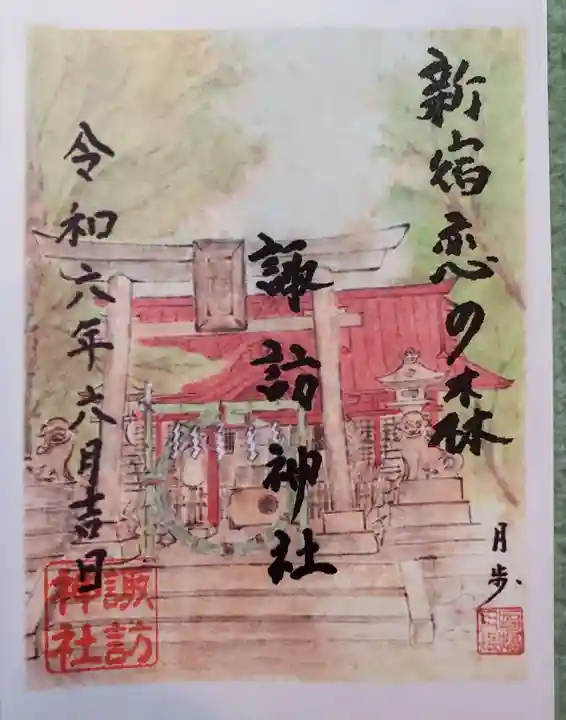 新宿恋の森
諏訪神社
令和六年六月吉日
月歩
諏訪
神社